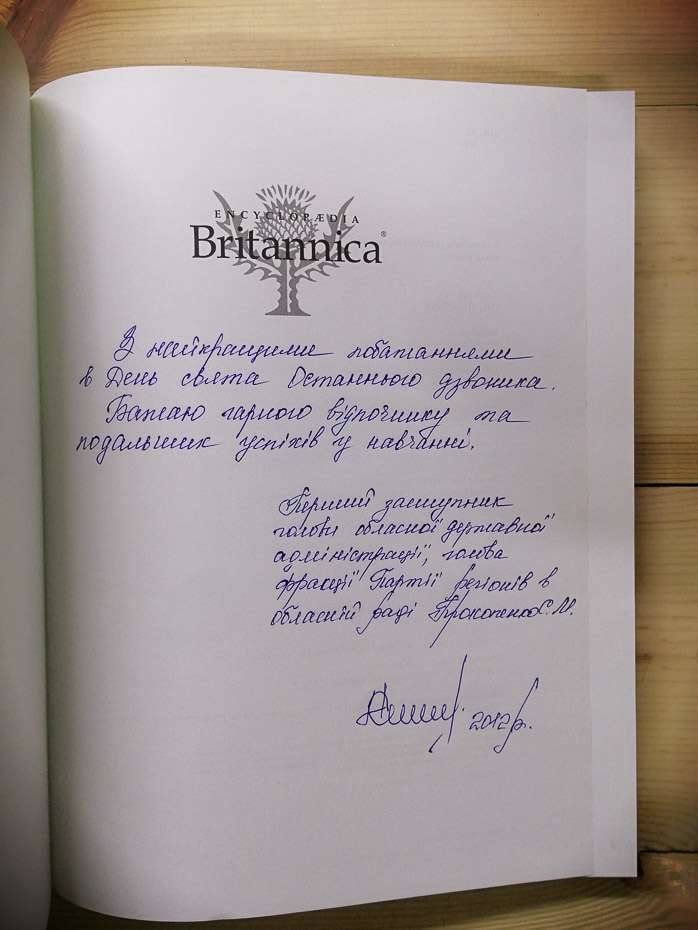 ENCYCLOPÆDIA
Britannica®
З найкращими побажаннями
в День свята Останнього дзвоника.
Бажаю гарного відпочинку та
подальших успіхів у навчанні.
Перший заступник
голови обласної державної
адміністрації, голова
фракції Партії регіонів в
обласній раді Прокопенко С.М.
2012р.